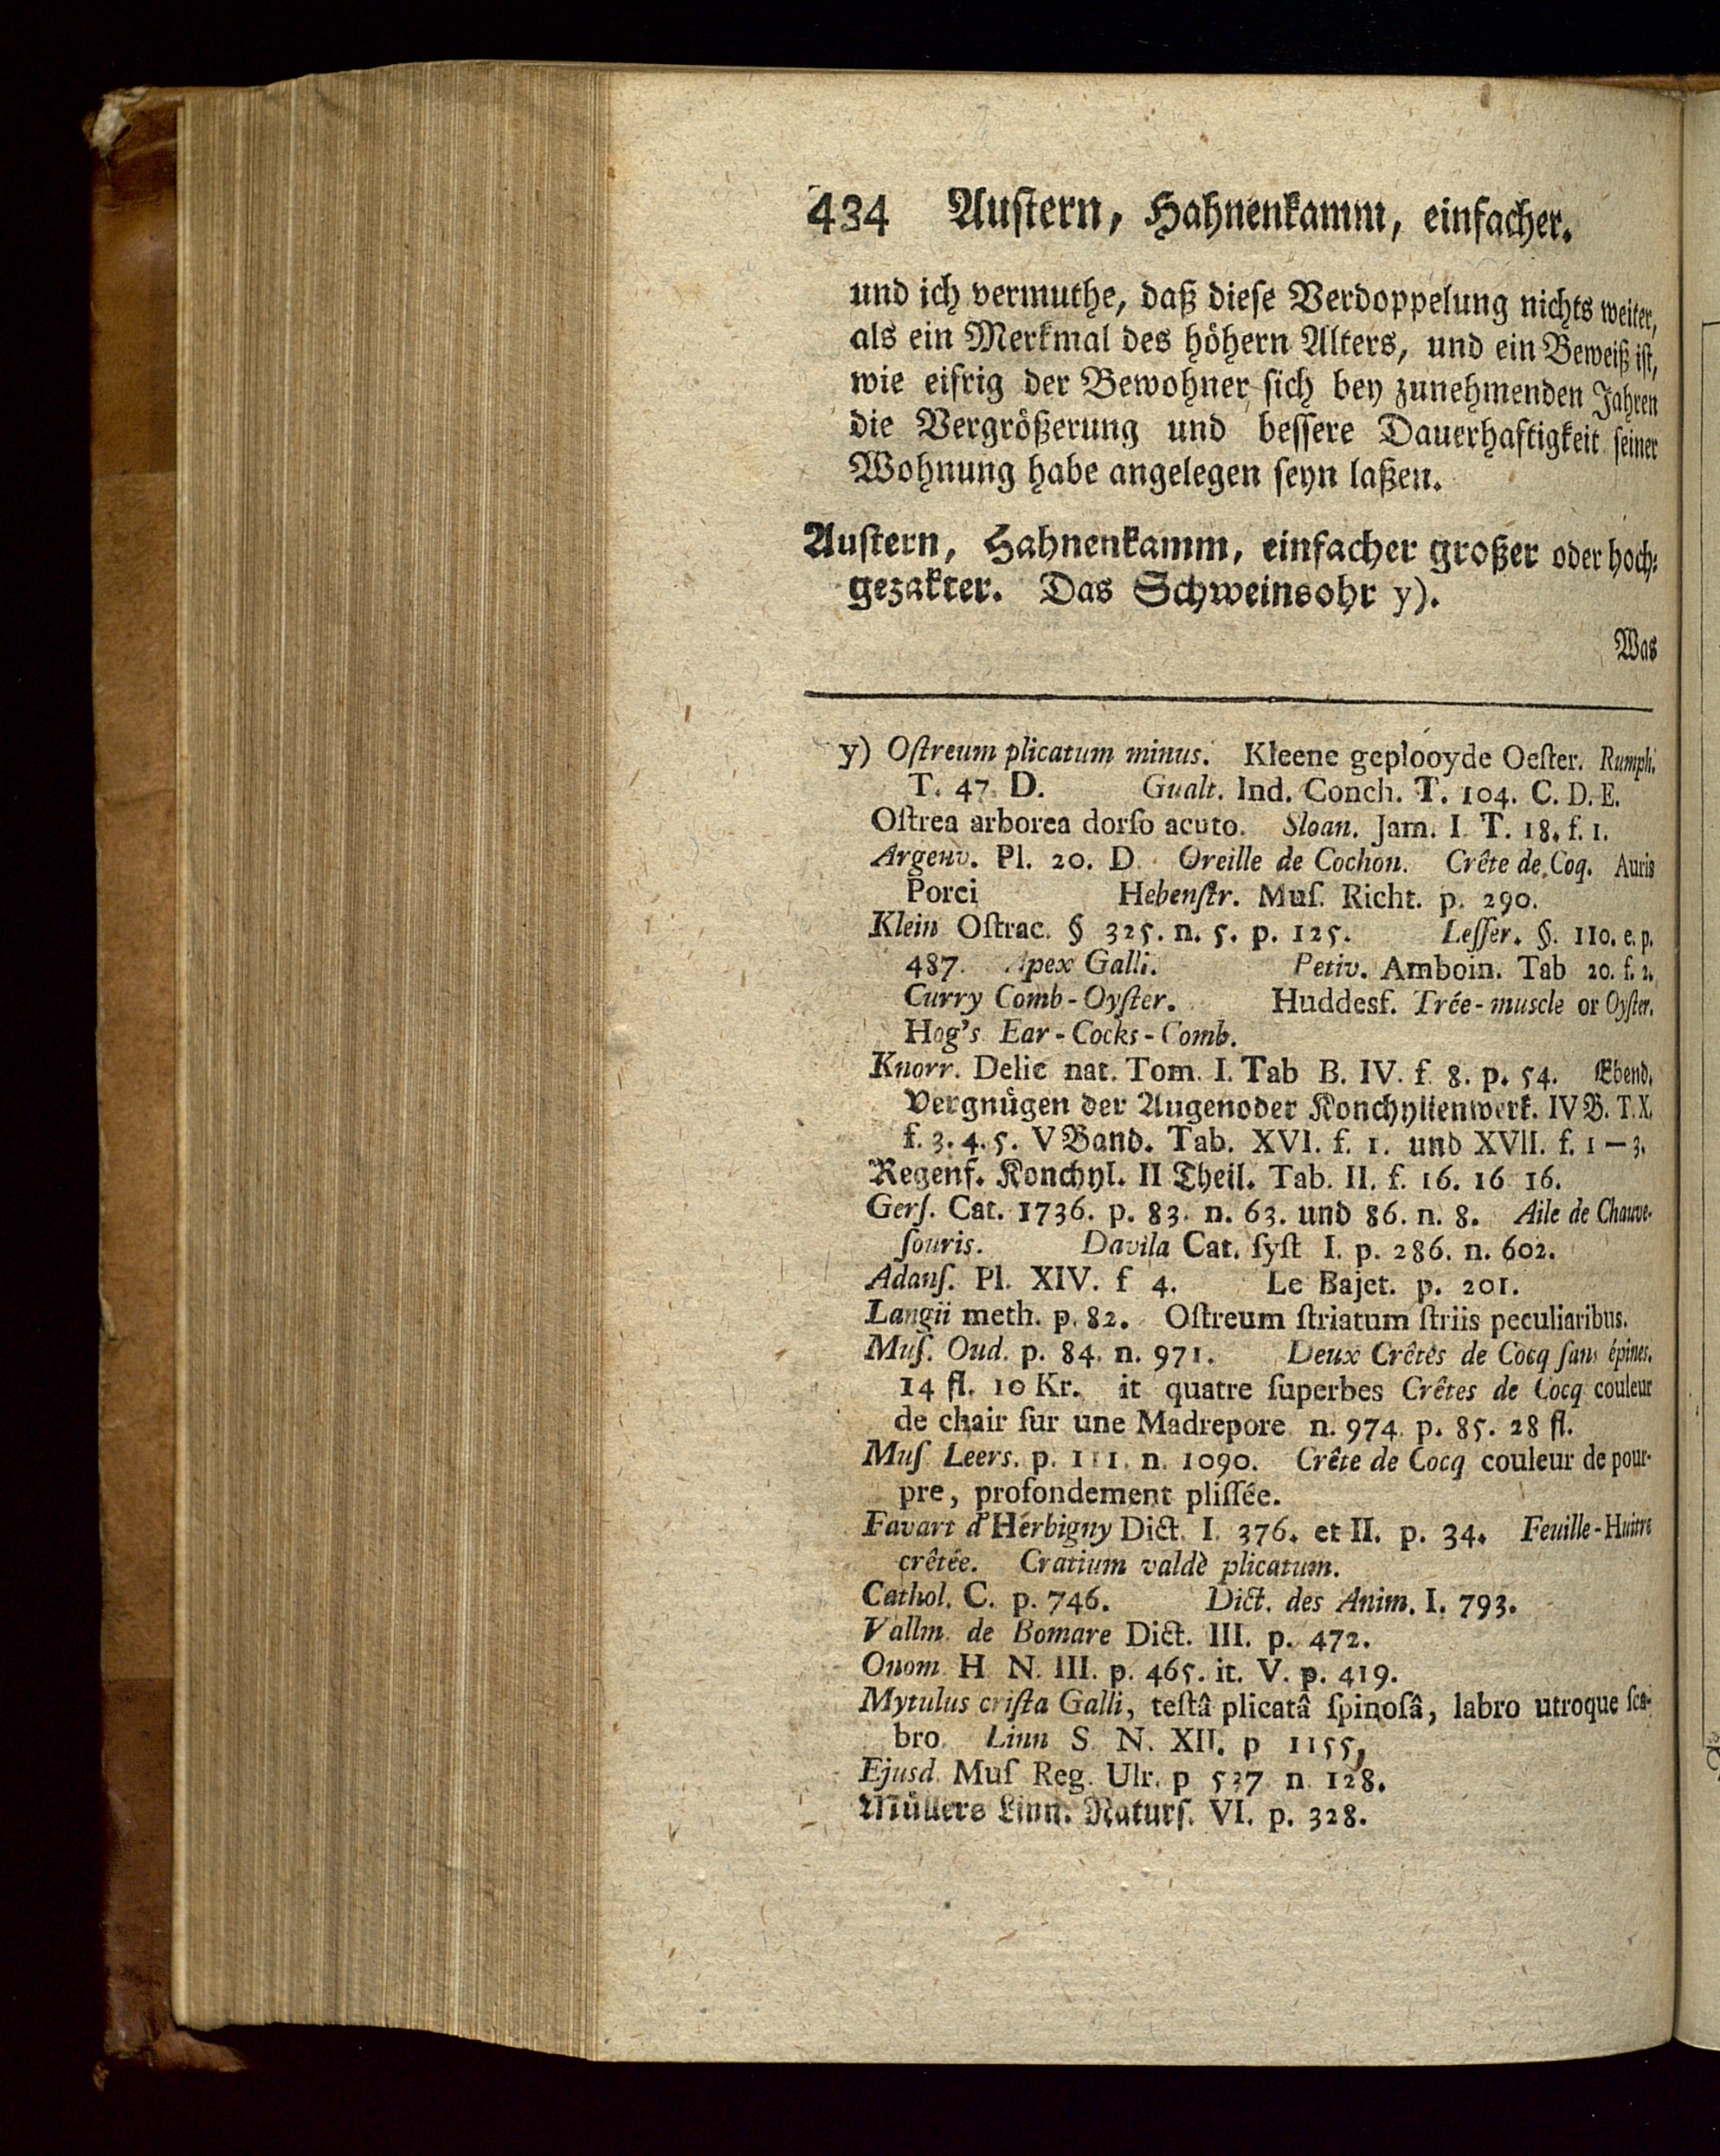 434 Auſtern, Hahnenkamm, einfacher.
und ich vermuthe, daß dieſe Verdoppelung nichts weiter,
als ein Merkmal des höhern Alters, und ein Beweiß iſt,
wie eifrig der Bewohner ſich bey zunehmenden Jahren
die Vergrößerung und beſſere Dauerhaftigkeit ſeiner
Wohnung habe angelegen ſeyn laßen.
Auſtern, Hahnenkamm, einfacher großer oder hoch-
gezakter. Das Schweinsohr y).
Was
y) Oſtreum plicatum minus. Kleene geplooyde Oeſter. Rumph.
T. 47. D. Gualt. Ind. Conch. T. 104. C. D. E.
Oſtrea arborea dorſo acuto. Sloan. Jam. I. T. 18. f. 1.
Argenv. Pl. 20. D. Oreille de Cochon. Crête de Coq. Auris
Porci Hebenſtr. Muſ. Richt. p. 290.
Klein Oſtrac. § 325. n. 5. p. 125. Leſſer. §. 110. e. p.
487. Apex Galli. Petiv. Amboin. Tab 20. f. 2.
Curry Comb-Oyſter. Huddesf. Trée-muscle or Oyſter.
Hog's Ear-Cocks-Comb.
Knorr. Delic nat. Tom. I. Tab B. IV. f. 8. p. 54. Ebend.
Vergnügen der Augenoder Konchylienwerk. IV B. T. X.
f. 3. 4. 5. V Band. Tab. XVI. f. 1. und XVII. f. 1 — 3.
Regenf. Konchyl. II Theil. Tab. II. f. 16. 16 16.
Gerſ. Cat. 1736. p. 83. n. 63. und 86. n. 8. Aile de Chauve-
ſouris. Davila Cat. ſyſt I. p. 286. n. 602.
Adanſ. Pl. XIV. f 4. Le Bajet. p. 201.
Langii meth. p. 82. Oſtreum ſtriatum ſtriis peculiaribus.
Muſ. Oud. p. 84. n. 971. Deux Crêtes de Cocq ſans épines.
14 fl. 10 Kr. it quatre ſuperbes Crêtes de Cocq couleur
de chair ſur une Madrepore n. 974. p. 85. 28 fl.
Muſ Leers. p. 111. n. 1090. Crête de Cocq couleur de pour-
pre, profondement pliſſée.
Favart d'Herbigny Dict. I. 376. et II. p. 34. Feuille-Huitre
crêtée. Cratium valdè plicatum.
Cathol. C. p. 746. Dict. des Anim. I. 793.
Vallm. de Bomare Dict. III. p. 472.
Onom. H N. III. p. 465. it. V. p. 419.
Mytulus criſta Galli, teſtâ plicatâ ſpinoſâ, labro utroque ſca-
bro. Linn S. N. XII. p 1155,
Ejusd. Muſ Reg. Ulr. p 537 n. 128.
Müllers Linn. Naturſ. VI. p. 328.